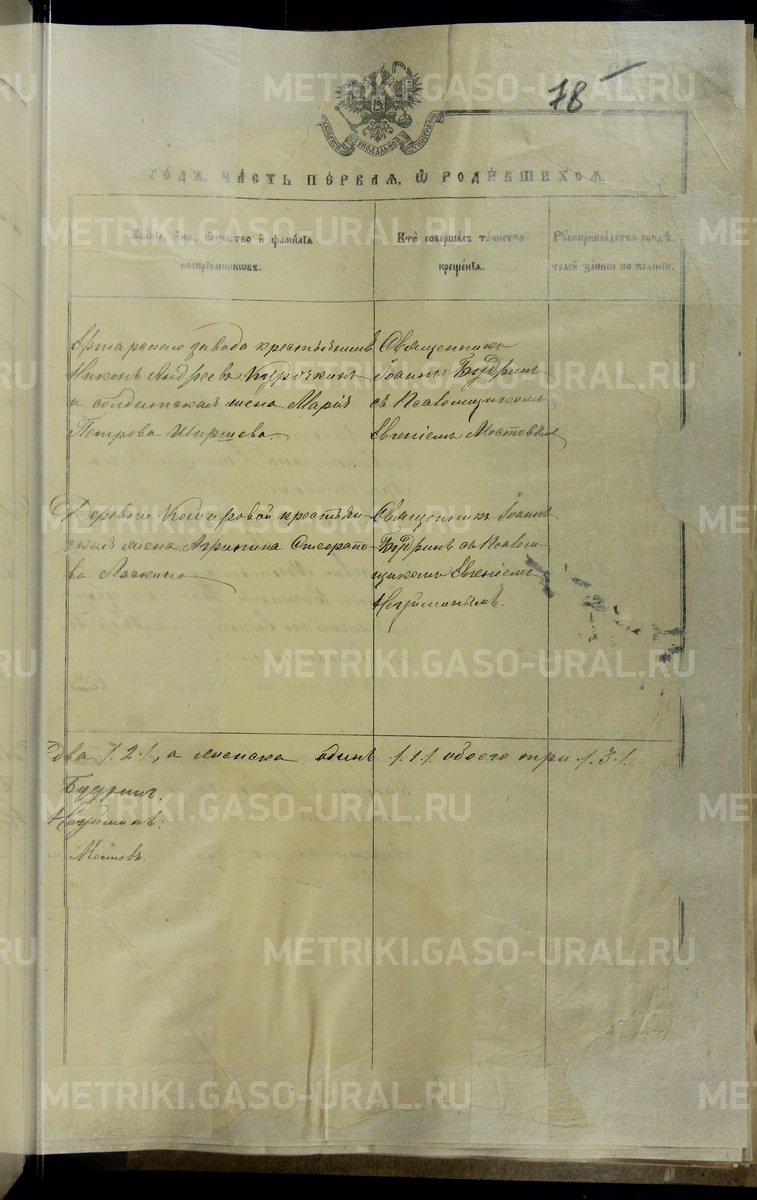 78
СѴНОДАЛЬНОЙ
ГОДЪ, ЧАСТЬ ПЕРВАЯ, Ѽ РОДИВШИХСЯ.
Званіе, имѧ, отчество и фамилія воспріемниковъ.
Кто совершалъ таинство крещенія.
Рукоприкладство свидѣтелей записи по желанію.
Артаскаго завода крестьянинъ
Никонъ Андреевъ Курочкинъ
и солдатская жена Марія
Петрова Ширшева
Священникъ
Іоаннъ Будринъ
съ Псаломщикомъ
Евгеніемъ Мостов
Деревни Комаровой крестьян-
ская жена Агрипина
ва Ласкина
Священникъ Іоаннъ
Будринъ съ Псалом-
щикомъ Евгеніемъ
два /.2./, а женска одинъ /.1./ обоего три /.3./
Будринъ.
METRIKI.GASO-URAL.RU
METRIKI.GASO-URAL.RU
METRIKI.GASO-URAL.RU
METRIKI.GASO-URAL.RU
METRIKI.GASO-URAL.RU
METRIKI.GASO-URAL.RU
METRIKI.GASO-URAL.RU
METRIKI.GASO-URAL.RU